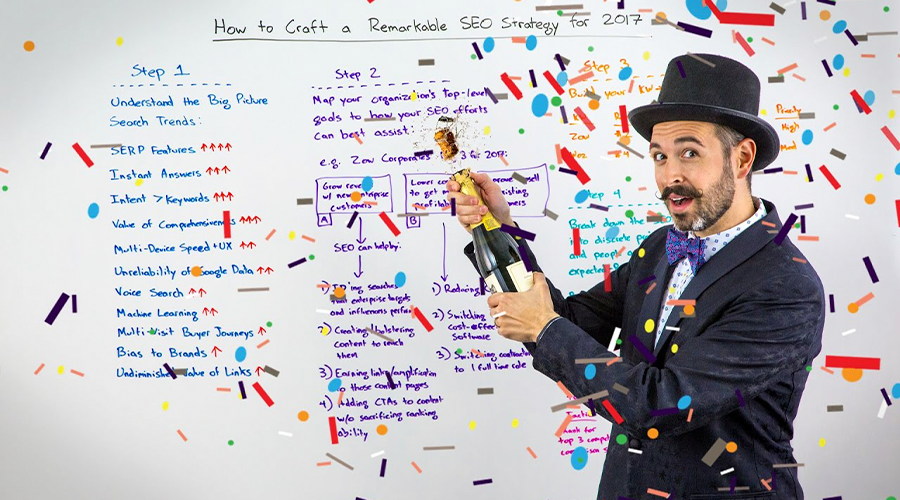 How to Craft a Remarkable SEO Strategy for 2017
Step 1
Understand the Big Picture
Search Trends:
SERP Features ↑↑↑↑
Instant Answers ↑↑↑
Intent > Keywords ↑↑↑
Value of Comprehensiveness ↑↑↑
Multi-Device Speed + UX ↑↑
Unreliability of Google Data ↑↑
Voice Search ↑↑
Machine Learning ↑↑
Multi-visit Buyer Journeys ↑
Bias to Brands ↑
Undiminished Value of Links ↑
Step 2
Map your organization's top-level
goals to how your SEO efforts
can best assist:
e.g. Zow Corporates 3 for 2017:
Grow
w/ new enterprise
customers
A
SEO can help by:
1) searches
that enterprise targets
and influencers perform
2) Creating bolstering
content to reach
them
3) Earning links/amplification
to those content pages
4) Adding CTAs to content
w/o sacrificing ranking
ability
Lower
to get
B
1) Reducing
2) Switching
Software
3) Switching
to 1 full time role
Step 3
Build your KW
Zow
Priority
High
Med
Step 4
Break down the
into discrete
and people
Tactic
top 3